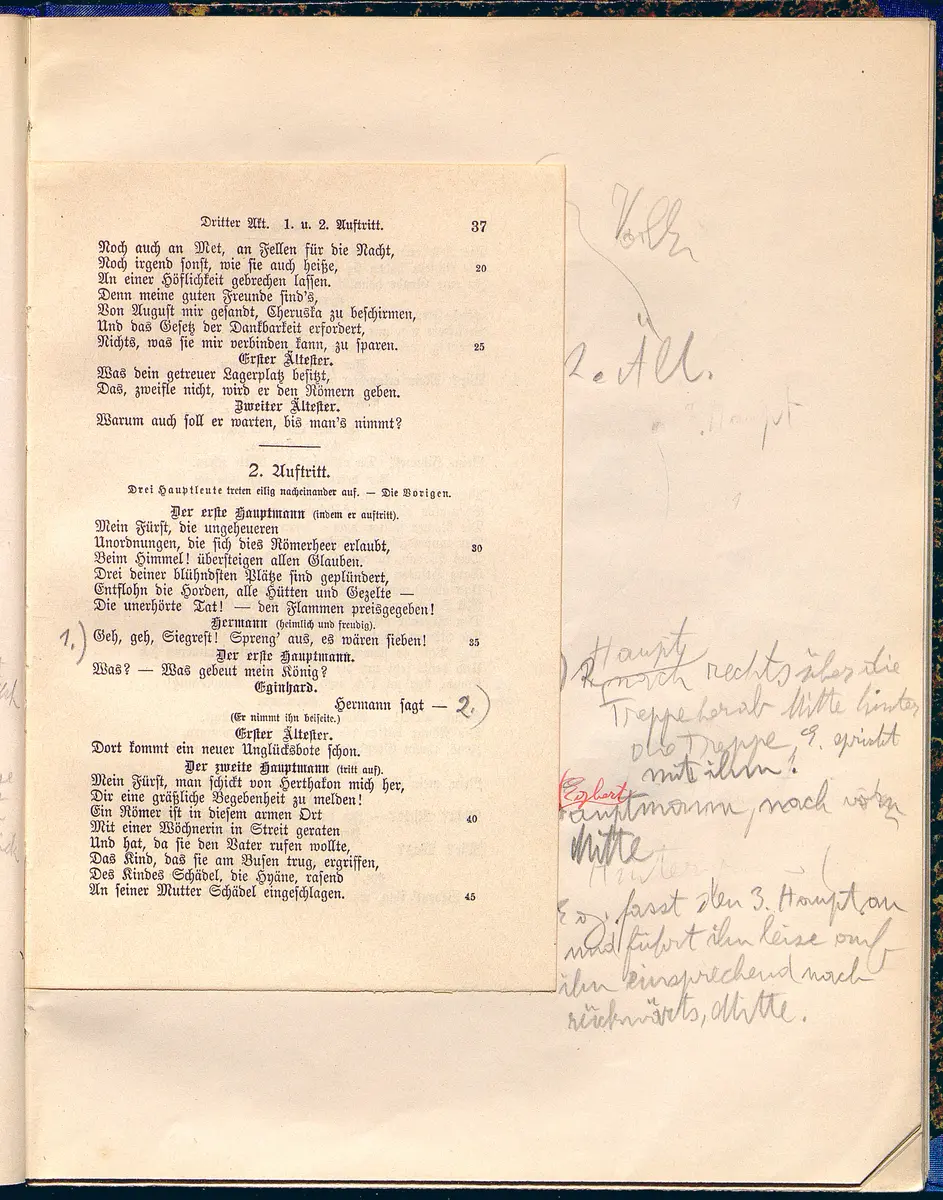 Dritter Akt. 1. u. 2. Auftritt. 37
Noch auch an Met, an Fellen für die Nacht,
Noch irgend sonst, wie sie auch heiße, 20
An einer Höflichkeit gebrechen lassen.
Denn meine guten Freunde sind's,
Von August mir gesandt, Cheruska zu beschirmen,
Und das Gesetz der Dankbarkeit erfordert,
Nichts, was sie mir verbinden kann, zu sparen. 25
Erster Ältester.
Was dein getreuer Lagerplatz besitzt,
Das, zweifle nicht, wird er den Römern geben.
Zweiter Ältester.
Warum auch soll er warten, bis man's nimmt?
2. Auftritt.
Drei Hauptleute treten eilig nacheinander auf. — Die Vorigen.
Der erste Hauptmann (indem er auftritt).
Mein Fürst, die ungeheueren
Unordnungen, die sich dies Römerheer erlaubt, 30
Beim Himmel! übersteigen allen Glauben.
Drei deiner blühndsten Plätze sind geplündert,
Entflohn die Horden, alle Hütten und Gezelte —
Die unerhörte Tat! — den Flammen preisgegeben!
Hermann (heimlich und freudig).
1.) Geh, geh, Siegrest! Spreng' aus, es wären sieben! 35
Der erste Hauptmann.
Was? — Was gebeut mein König?
Eginhard.
Hermann sagt — 2.)
(Er nimmt ihn beiseite.)
Erster Ältester.
Dort kommt ein neuer Unglücksbote schon.
Der zweite Hauptmann (tritt auf).
Mein Fürst, man schickt von Herthakon mich her,
Dir eine gräßliche Begebenheit zu melden!
Ein Römer ist in diesem armen Ort 40
Mit einer Wöchnerin in Streit geraten
Und hat, da sie den Vater rufen wollte,
Das Kind, das sie am Busen trug, ergriffen,
Des Kindes Schädel, die Hyäne, rasend
An seiner Mutter Schädel eingeschlagen. 45
2. Ält.
Haupt
nach rechts über die
Treppe herab Mitte hinter
die Treppe, E. spricht
mit ihm.
Hauptmann, nach vorn
Mitte
Eg. fasst den 3. Haupt. an
und führt ihn leise auf
ihn einsprechend nach
rückwärts, Mitte.